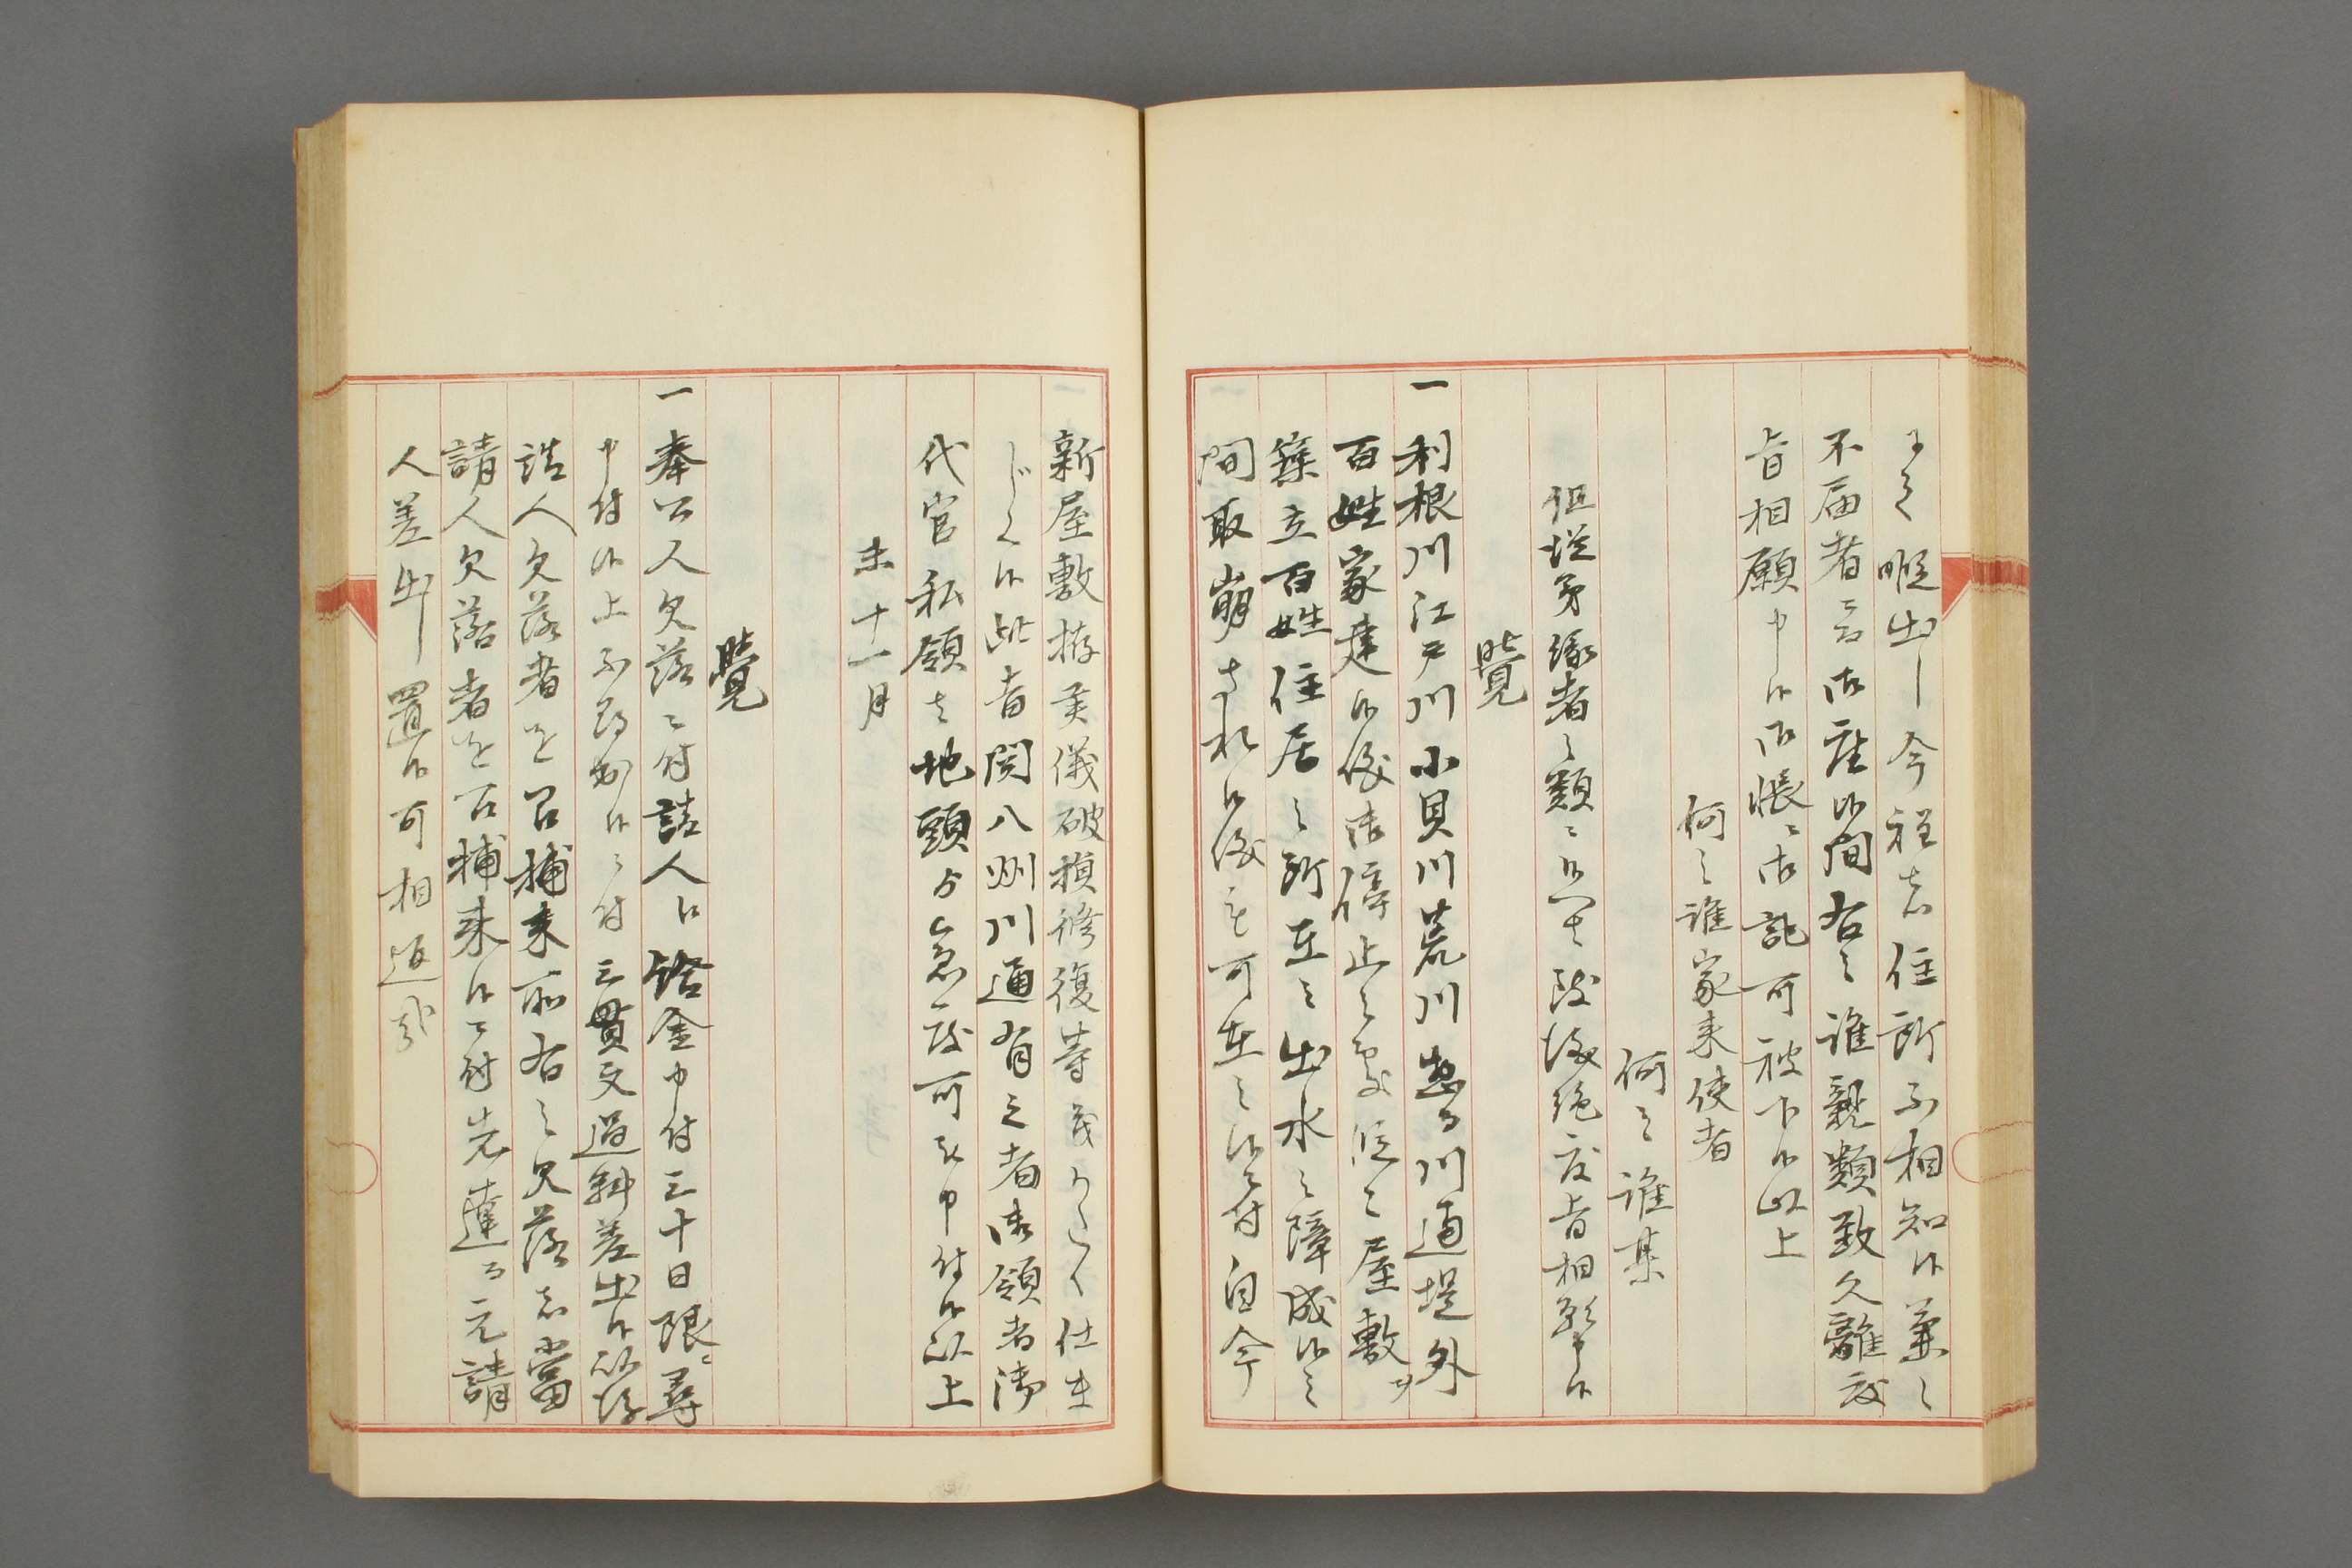 罷出今程者住所不相知候兼々
不届者ニ而御座候間右之誰親類致久離度
旨相願申候御帳ニ御記可被下候以上
何之誰家来使者
何之誰某
但従弟縁者之類ニ候ハヽ致後絶度旨相願申候
覺
一利根川江戸川小貝川荒川惣而川通堤外
百姓家建候儀御停止之處従之屋敷
築立百姓住居之所在々出水之障成候之
間取崩させ候儀も可在之候ニ付自今
一新屋敷拵候儀破損修復等茂かたく仕ま
じく候此旨関八州川通有之者御領者御
代官私領者地頭より急度可被申付候以上
未十一月
覺
一奉公人欠落ニ付請人江給金申付三十日限ニ尋
申付候上不尋出候ニ付三貫文過料差出候以後
請人欠落者を召捕来而右之欠落者當
請人欠落者を召捕来候ニ付先達而元請
人差出置候可相返哉